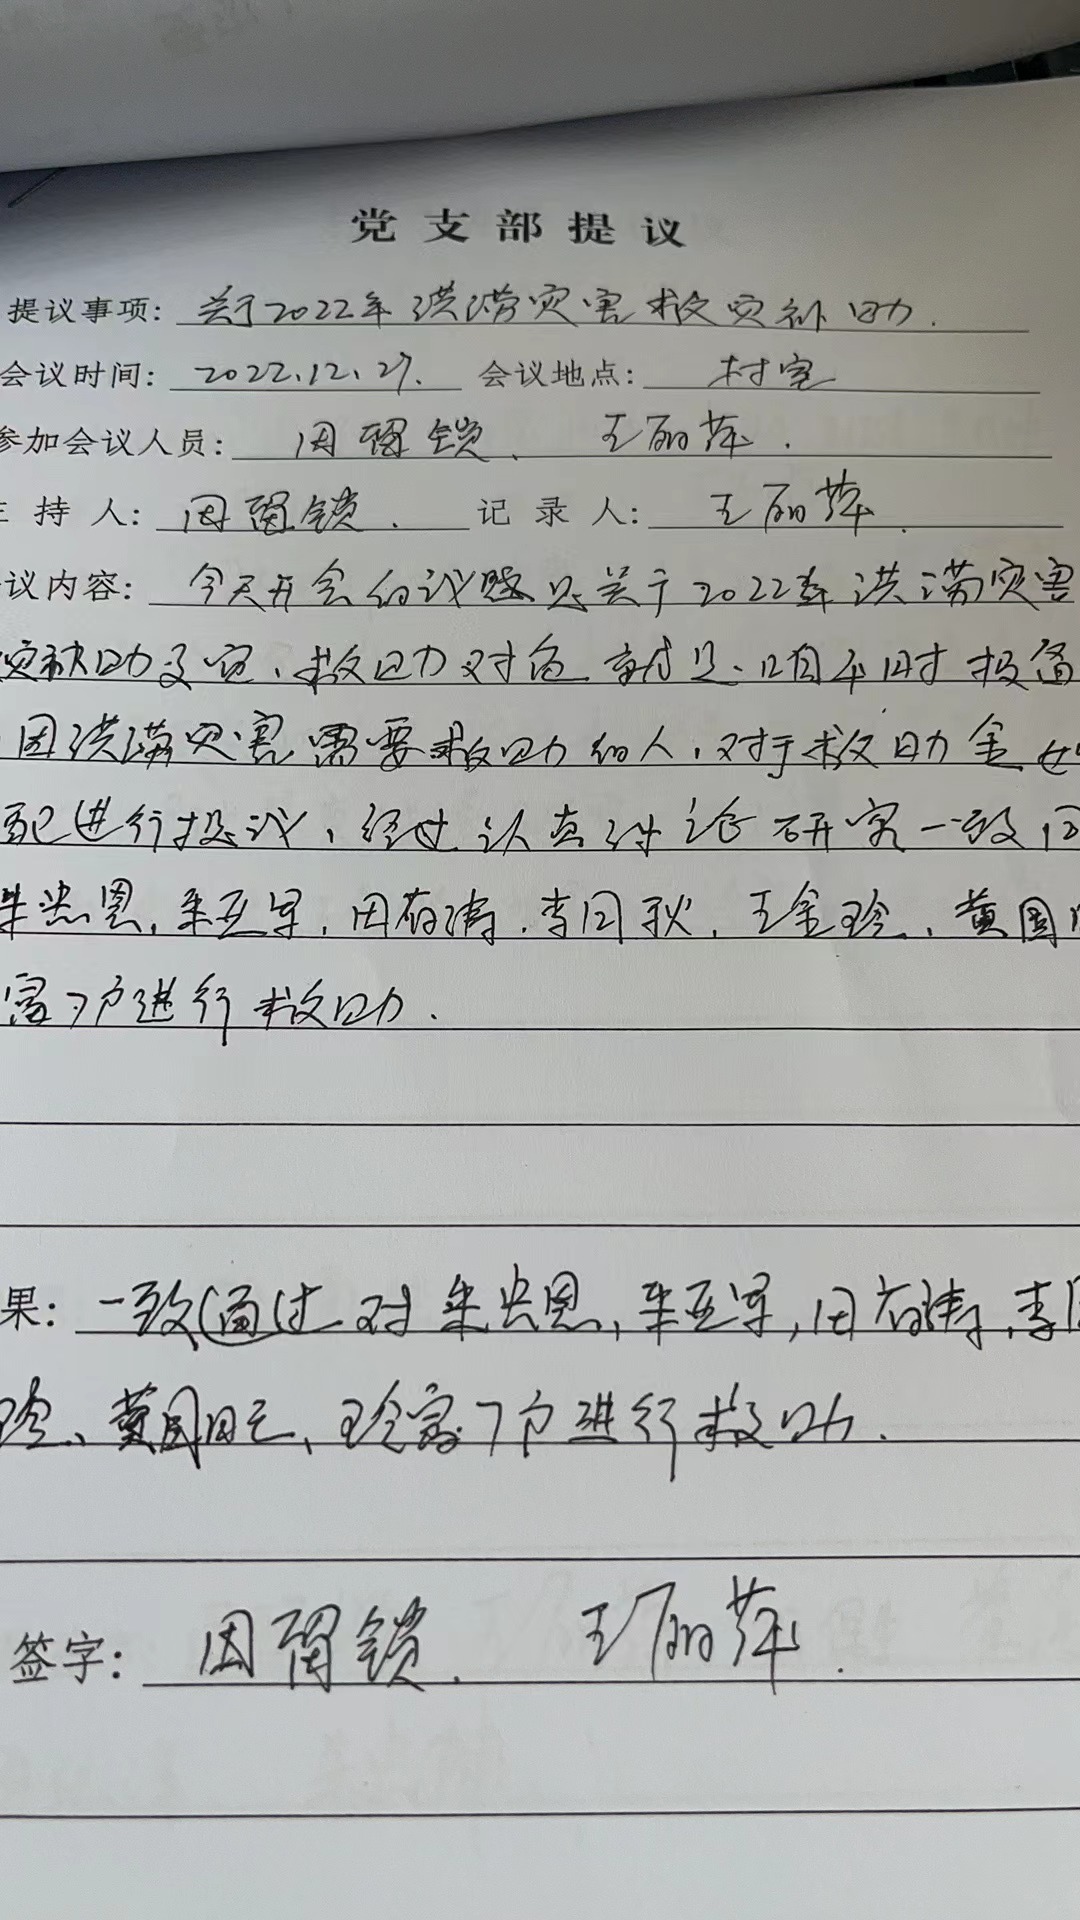 党支部提议
提议事项: 关于2022年洪涝灾害救灾补助.
会议时间: 2022.12.27. 会议地点: 村室
参加会议人员: 田留锁、王丽萍.
持人: 田留锁. 记录人: 王丽萍.
议内容: 今天开会的议题是关于2022年洪涝灾害
灾补助 救助对 就是 时
因洪涝灾害需要救助的人,对于救助金
配进行提议,经过认真讨论研究一致同
朱忠恩,朱亚军,田存涛,李同秋,王金珍,黄国
富7户进行救助.
果: 一致通过对朱忠恩,朱亚军,田存涛,李
珍、黄国旺、富7户进行救助.
签字: 田留锁、王丽萍.